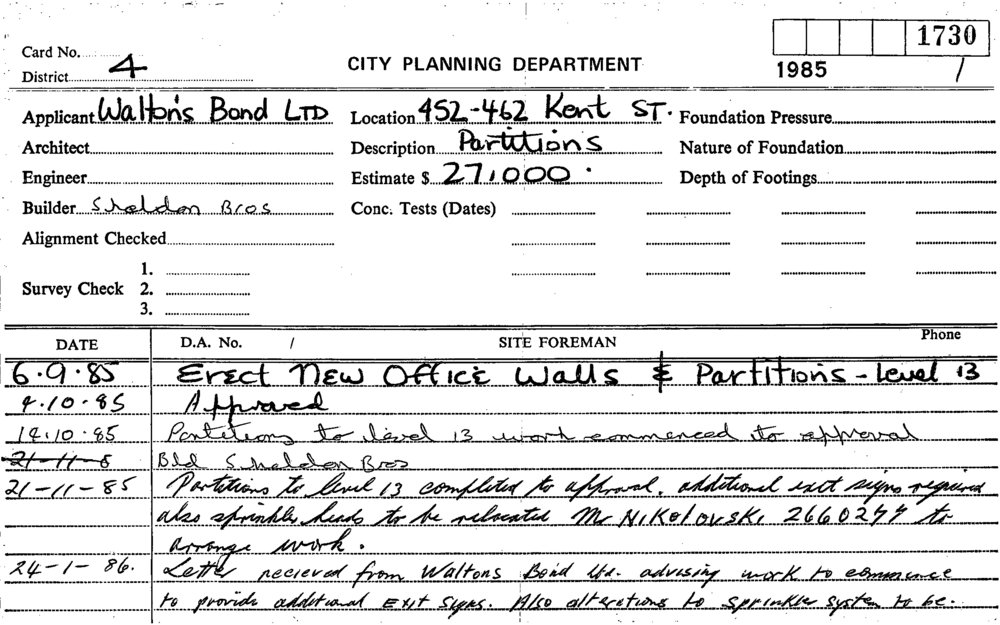 1730
Card No.
District 4 CITY PLANNING DEPARTMENT 1985 /
Applicant Waltons Bond LTD Location 452-462 Kent ST. Foundation Pressure
Architect Description Partitions Nature of Foundation
Engineer Estimate $ 27,000. Depth of Footings
Builder Sheldon Bros Conc. Tests (Dates)
Alignment Checked
1.
Survey Check 2.
3.
DATE D.A. No. / SITE FOREMAN Phone
6.9.85 Erect new Office Walls & Partitions - level 13
4.10.85 Approved
14.10.85 Partitions to level 13 work commenced to approval
21-11-8 Bld Sheldon Bros
21-11-85 Partitions to level 13 completed to approval, additional exit signs required
also sprinkler heads to be relocated Mr Nikolovski 2660277 to
arrange work.
24-1-86. Letter recieved from Waltons Bond Ltd. advising work to commence
to provide additional Exit Signs. Also alterations to sprinkler system to be.